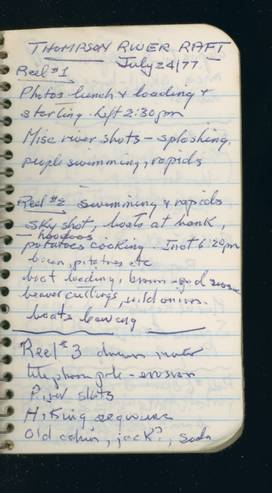 THOMPSON RIVER RAFT
July 24/77
Reel #1
Photos lunch & loading &
starting - left 2:30pm
Misc river shots - splashing,
people swimming, rapids
Reel #2 swimming & rapids
sky shot, boats at bank,
hoodoos,
potatoes cooking 6:20pm
etc
boat loading,
beaver cuttings, wild onion.
boats leaving
Reel #3 down
telephone pole - erosion
River shots
Hiking sequence
Old cabin,